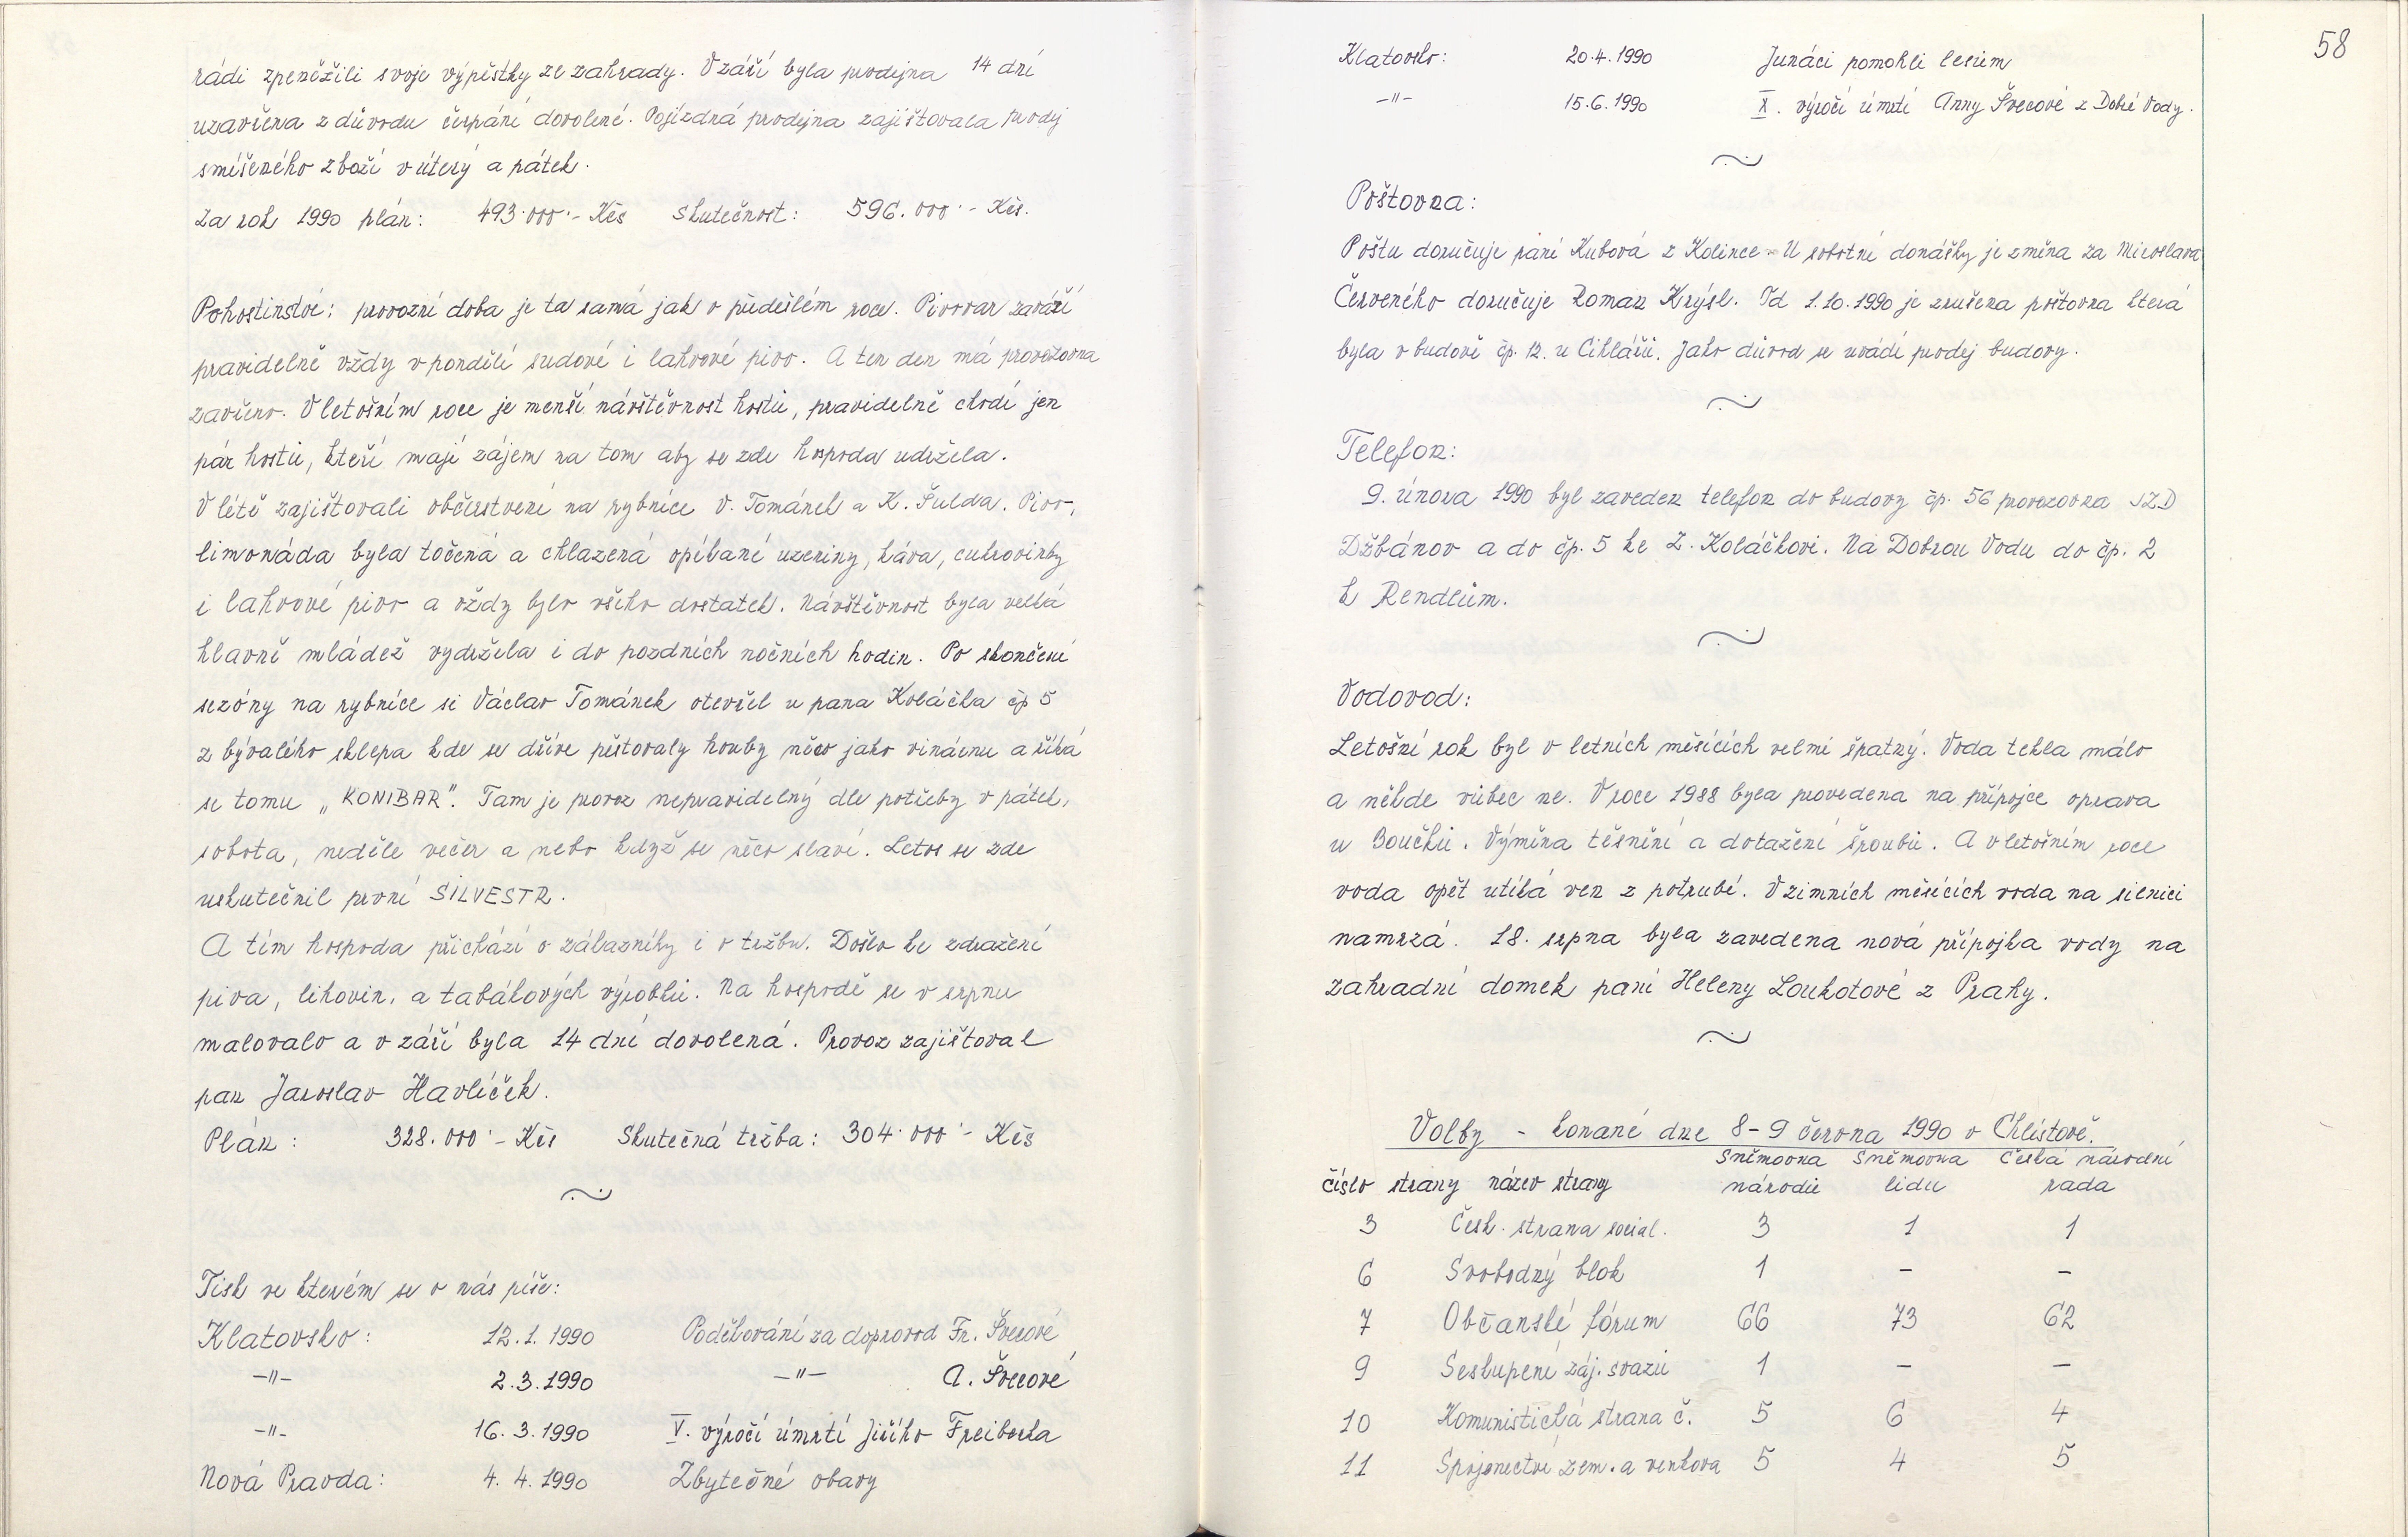 rádi zpeněžili svoje výpěstky ze zahrady. V září byla prodejna 14 dní
uzavřena z důvodu čerpání dovolené. Pojízdná prodejna zajišťovala prodej
smíšeného zboží v úterý a pátek.
Za rok 1990 plán: 493.000.- Kčs skutečnost: 596.000.- Kčs.
Pohostinství: provozní doba je ta samá jak v předešlém roce. Pivovar zaváží
pravidelně vždy v pondělí sudové i lahvové pivo. A ten den má provozovna
zavřeno. V letošním roce je menší návštěvnost hostů, pravidelně chodí jen
pár hostů, kteří mají zájem na tom aby se zde hospoda udržela.
V létě zajišťovali občerstvení na rybníce V. Tománek a K. Šulda. Pivo,
limonáda byla točená a chlazená opíkané uzeniny, káva, cukrovinky
i lahvové pivo a vždy bylo všeho dostatek. Návštěvnost byla velká
hlavně mládež vydržela i do pozdních nočních hodin. Po skončení
sezóny na rybníce si Václav Tománek otevřel u pana Koláčka čp 5
z bývalého sklepa kde se dříve pěstovaly houby něco jako vinárnu a říká
se tomu „KONIBAR". Tam je provoz nepravidelný dle potřeby v pátek,
sobota, neděle večer a nebo když se něco slaví. Letos se zde
uskutečnil první SILVESTR.
A tím hospoda přichází o zákazníky i o tržbu. Došlo ke zdražení
piva, lihovin, a tabákových výrobků. Na hospodě se v srpnu
malovalo a v září byla 14 dní dovolená. Provoz zajišťoval
pan Jaroslav Havlíček.
Plán: 328.000.- Kčs Skutečná tržba: 304.000.- Kčs
Tisk ve kterém se o nás píše:
Klatovsko: 12.1.1990 Poděkování za doprovod Fr. Švecové
-"- 2.3.1990 -"- A. Švecové
-"- 16.3.1990 V. výročí úmrtí Jiřího Freiberka
Nová Pravda: 4.4.1990 Zbytečné obavy
58
Klatovsko: 20.4.1990 Junáci pomohli lesům
-"- 15.6.1990 X. výročí úmrtí Anny Švecové z Dobré Vody.
Poštovna:
Poštu doručuje paní Kubová z Kolince. U sobotní donášky je změna za Miroslava
Červeného doručuje Roman Krýsl. Od 1.10.1990 je zrušena poštovna která
byla v budově čp. 12. u Cihlářů. Jako důvod se uvádí prodej budovy.
Telefon:
9. února 1990 byl zaveden telefon do budovy čp. 56 provozovna JZD
Džbánov a do čp. 5 ke Z. Koláčkovi. Na Dobrou Vodu do čp. 2
k Rendlům.
Vodovod:
Letošní rok byl v letních měsících velmi špatný. Voda tekla málo
a někde vůbec ne. V roce 1988 byla provedena na přípojce oprava
u Boučků. Výměna těsnění a dotažení šroubů. A v letošním roce
voda opět utíká ven z potrubí. V zimních měsících voda na silnici
namrzá. 18. srpna byla zavedena nová přípojka vody na
zahradní domek paní Heleny Loukotové z Prahy.
Volby - konané dne 8-9 června 1990 v Chlístově.
Sněmovna Sněmovna Česká národní
číslo strany název strany národů lidu rada
3 Česk. strana social. 3 1 1
6 Svobodný blok 1 - -
7 Občanské fórum 66 73 62
9 Seskupení záj. svazů 1 - -
10 Komunistická strana č. 5 6 4
11 Spojenectví zem. a venkova 5 4 5